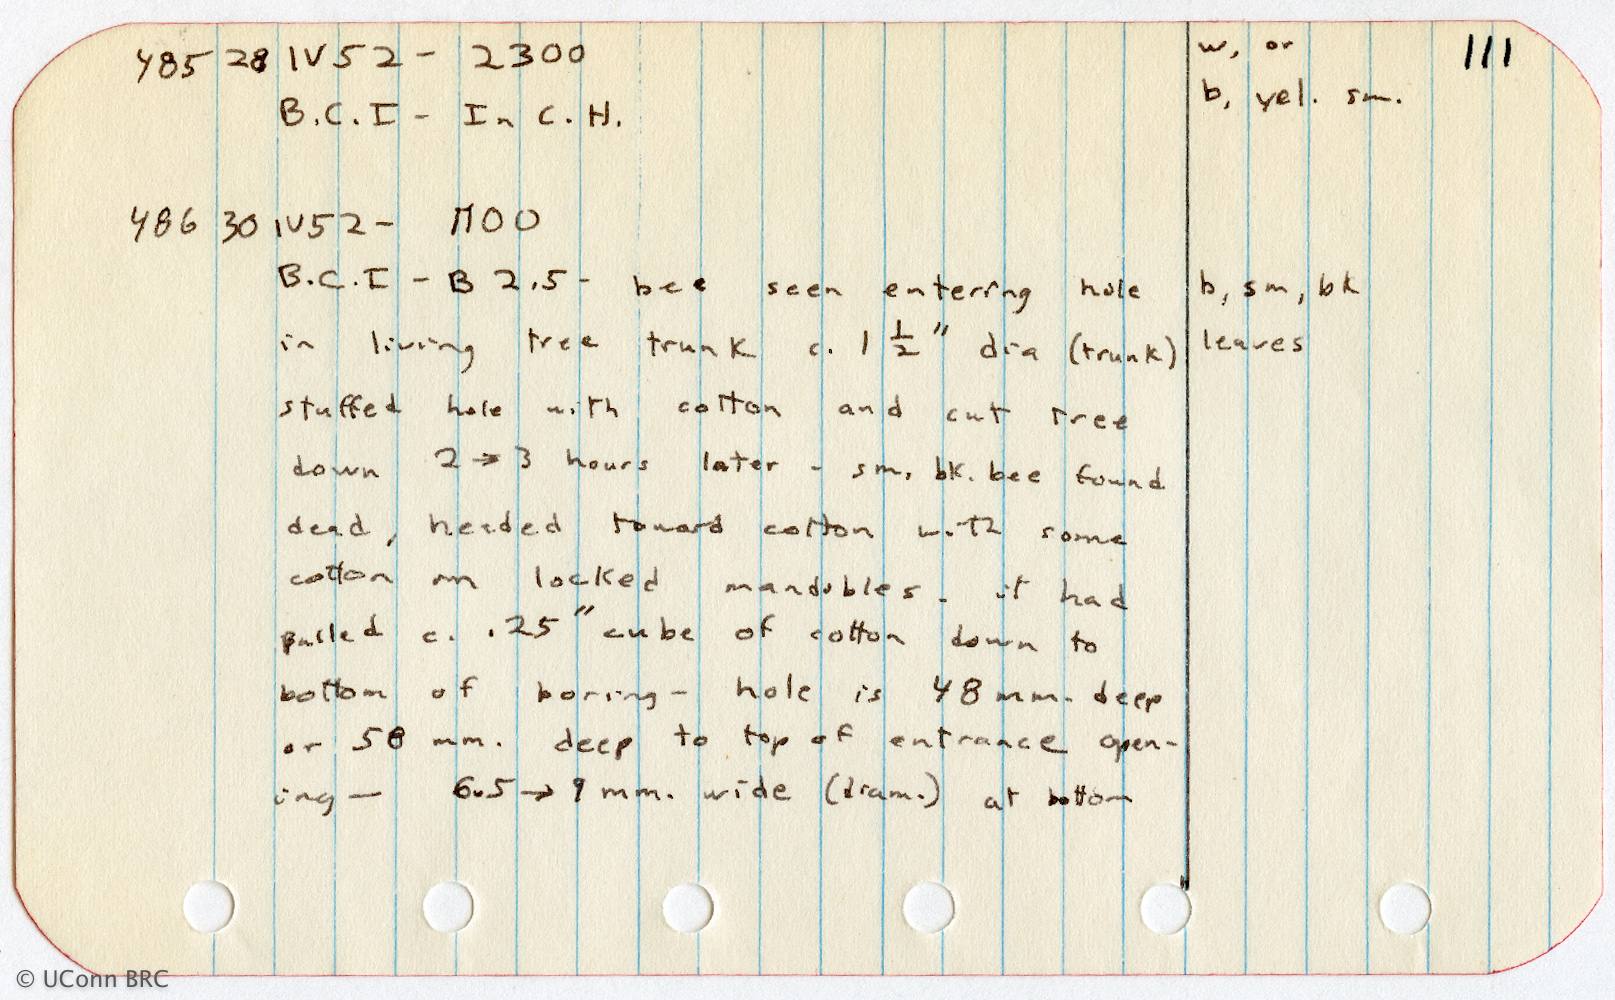 485 28 IV 52 - 2300 w, or 111
B.C.I - In C.H. b, yel. sm.
486 30 IV 52 - 1100
B.C.I - B 2.5 - bee seen entering hole b, sm, bk
in living tree trunk c. 1 1/2" dia (trunk) leaves
stuffed hole with cotton and cut tree
down 2→3 hours later - sm. bk. bee found
dead, headed toward cotton with some
cotton in locked mandibles. it had
pulled c. .25" cube of cotton down to
bottom of boring - hole is 48 mm. deep
or 58 mm. deep to top of entrance open-
ing — 6.5 → 9 mm. wide (diam.) at bottom
© UConn BRC